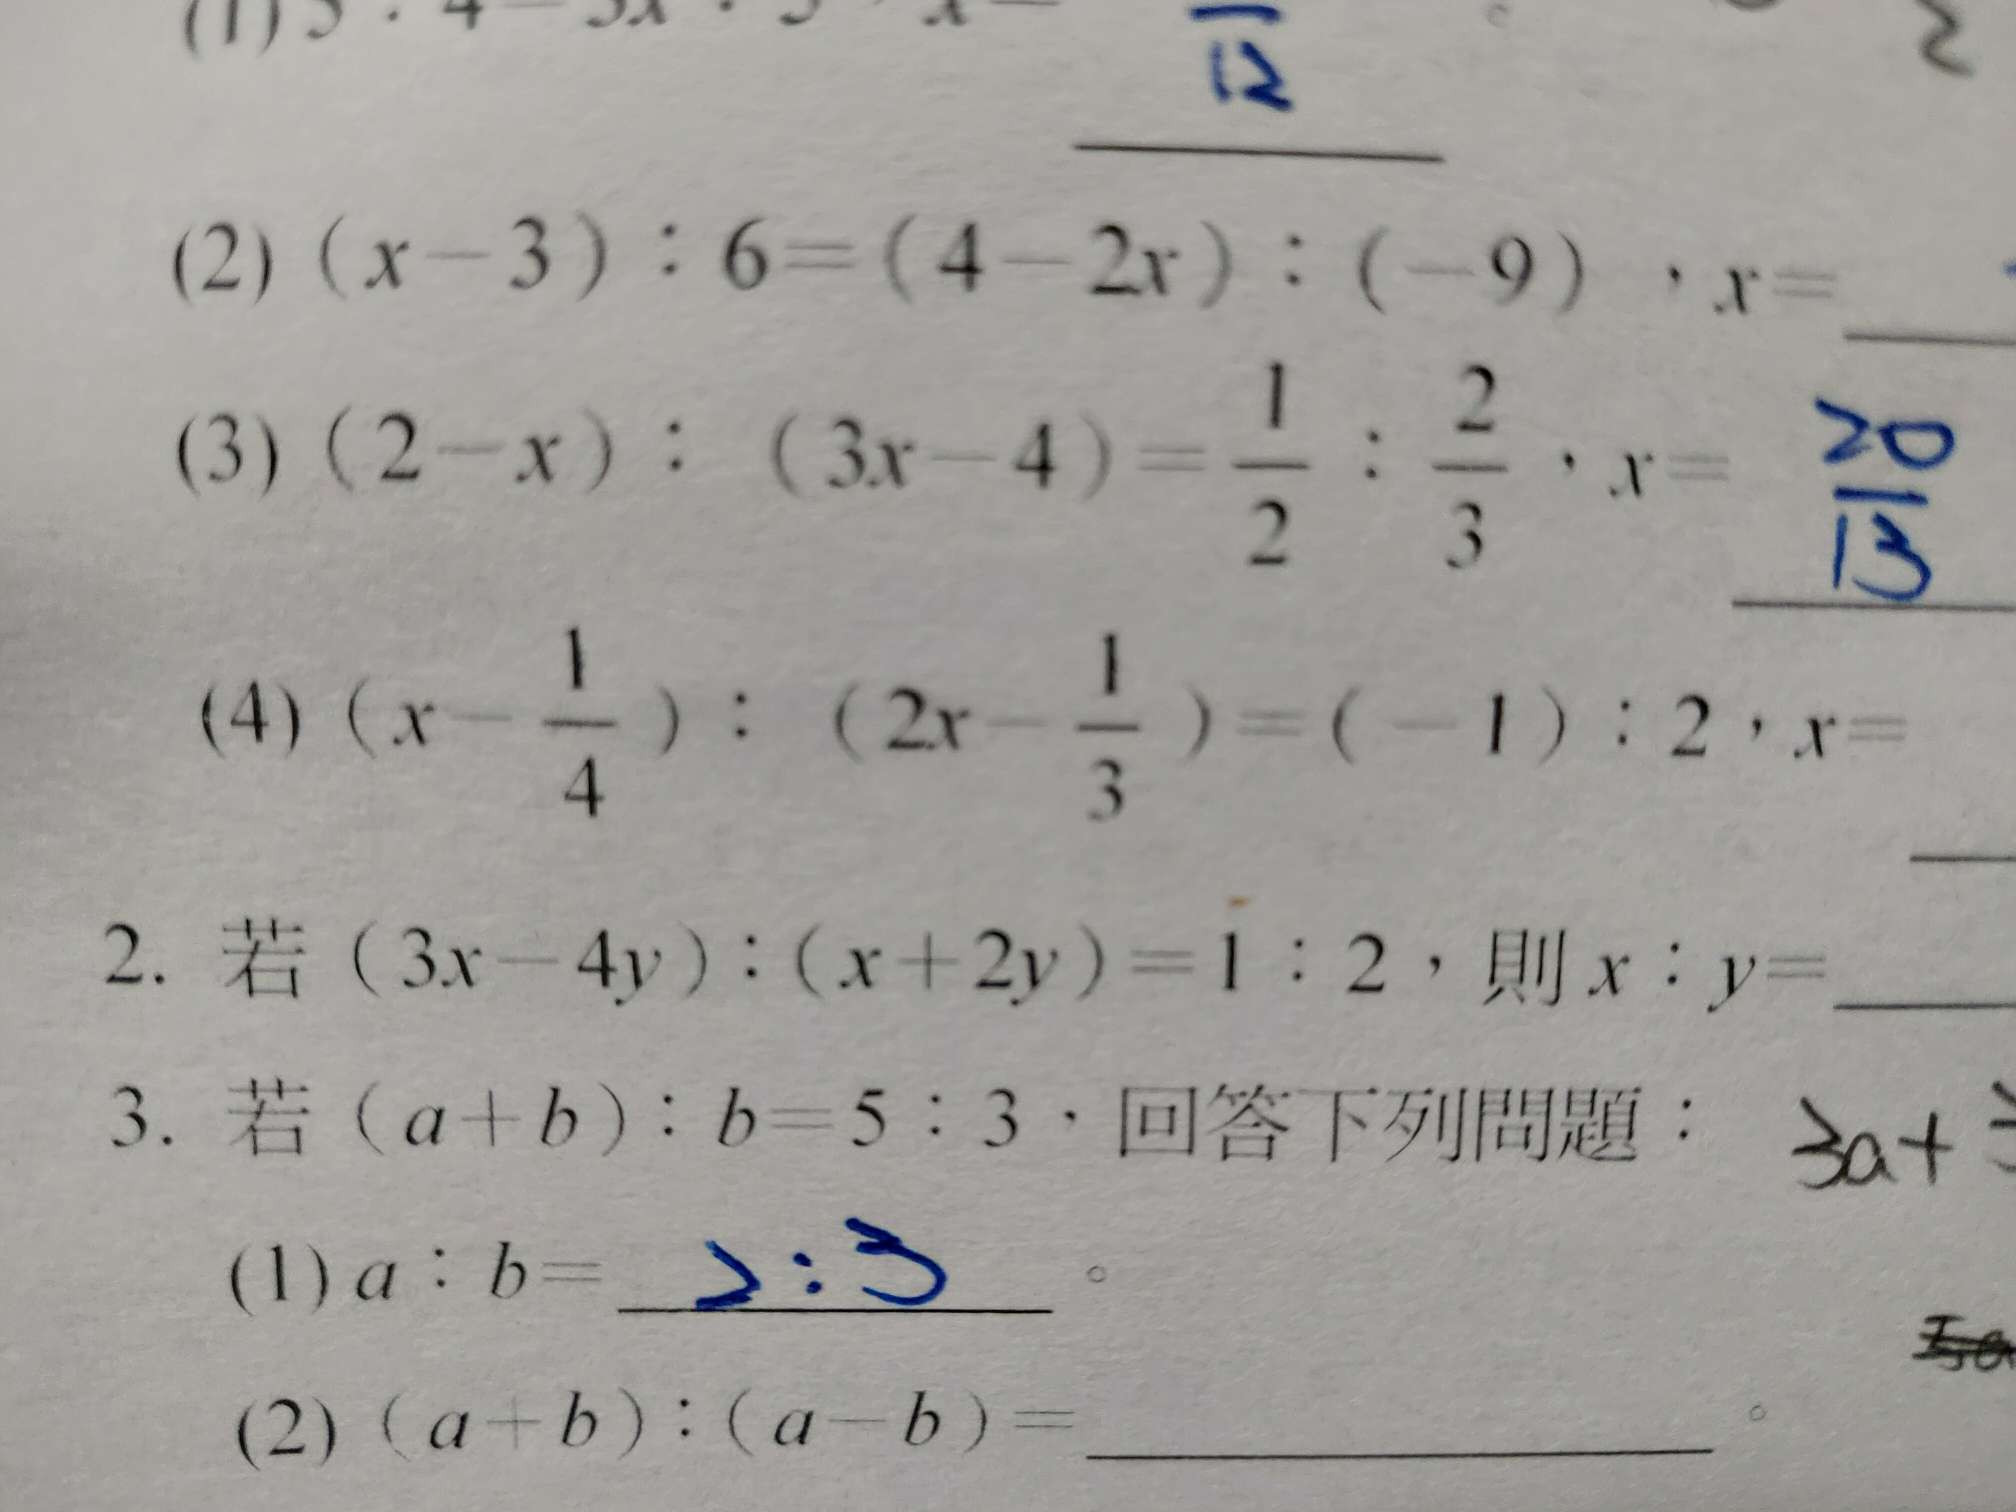 12
2
(2)（x－3）：6＝（4－2x）：（－9），x＝
(3)（2－x）：（3x－4）＝1/2：2/3，x＝ 20/13
(4)（x－1/4）：（2x－1/3）＝（－1）：2，x＝
2. 若（3x－4y）：（x＋2y）＝1：2，則 x：y＝
3. 若（a＋b）：b＝5：3，回答下列問題： 3a+
(1) a：b＝ 2:3 。
(2)（a＋b）：（a－b）＝ 。